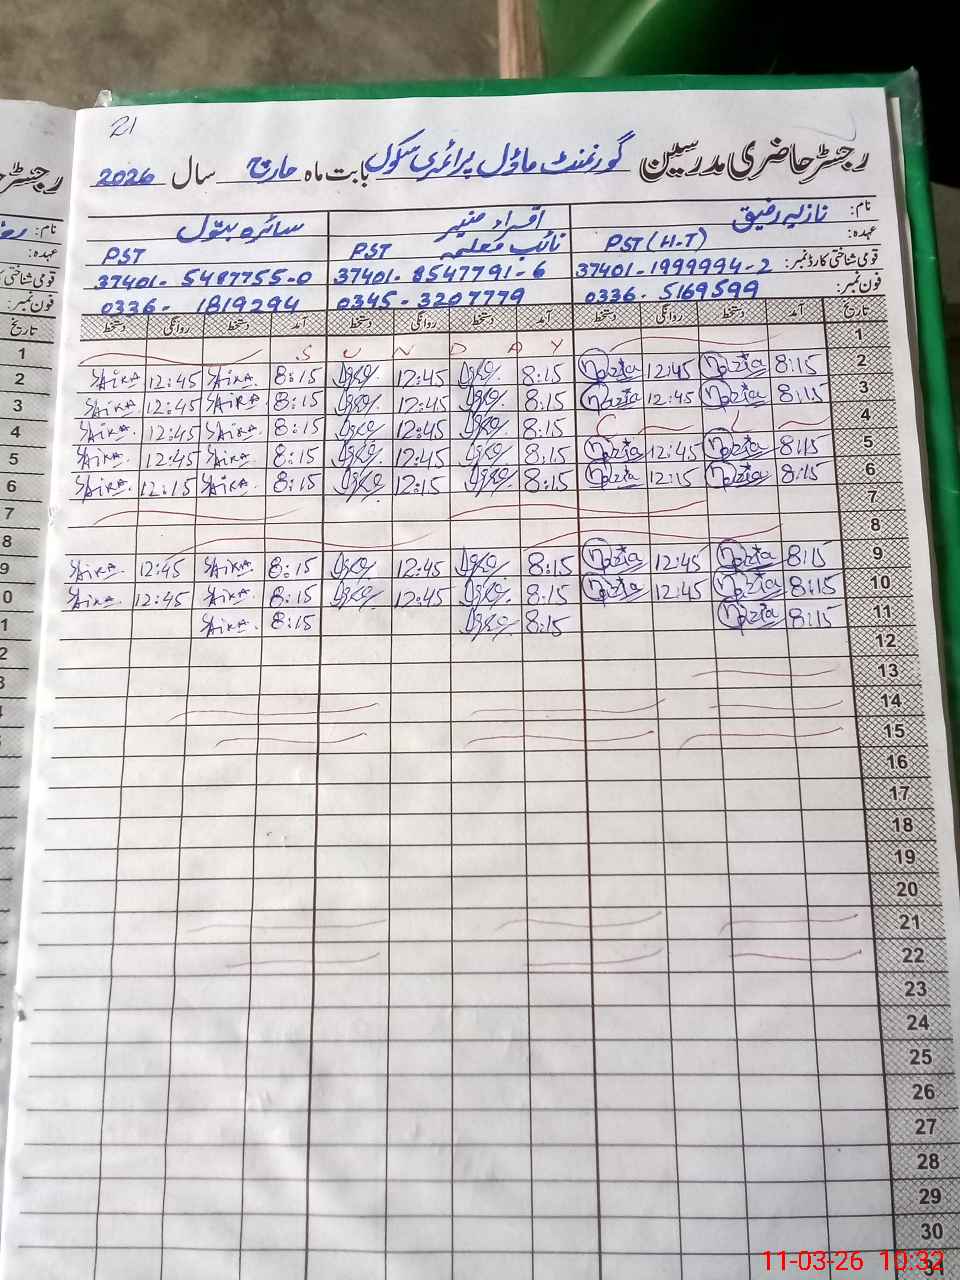 21
رجسٹر حاضری مدرسین گورنمنٹ ماڈل پرائمری سکول بابت ماہ مارچ سال 2026
نام: نازیہ رفیق اقراء منیر سائرہ بتول
عہدہ: PST (H-T) نائب معلمہ PST PST
قومی شناختی کارڈ نمبر: 37401-1999994-2 37401-8547791-6 37401-5487755-0
فون نمبر: 0336-5169599 0345-3207779 0336-1819294
تاریخ آمد دستخط روانگی دستخط آمد دستخط روانگی دستخط آمد دستخط روانگی دستخط
1 S U N D A Y
2 8:15 Nazia 12:45 Nazia 8:15 12:45 8:15 Saira 12:45 Saira
3 8:15 Nazia 12:45 Nazia 8:15 12:45 8:15 Saira 12:45 Saira
4 C L 8:15 12:45 8:15 Saira 12:45 Saira
5 8:15 Nazia 12:45 Nazia 8:15 12:45 8:15 Saira 12:45 Saira
6 8:15 Nazia 12:15 Nazia 8:15 12:15 8:15 Saira 12:15 Saira
7
8
9 8:15 Nazia 12:45 Nazia 8:15 12:45 8:15 Saira 12:45 Saira
10 8:15 Nazia 12:45 Nazia 8:15 12:45 8:15 Saira 12:45 Saira
11 8:15 Nazia 8:15 8:15 Saira
12
13
14
15
16
17
18
19
20
21
22
23
24
25
26
27
28
29
30
31
11-03-26 10:32